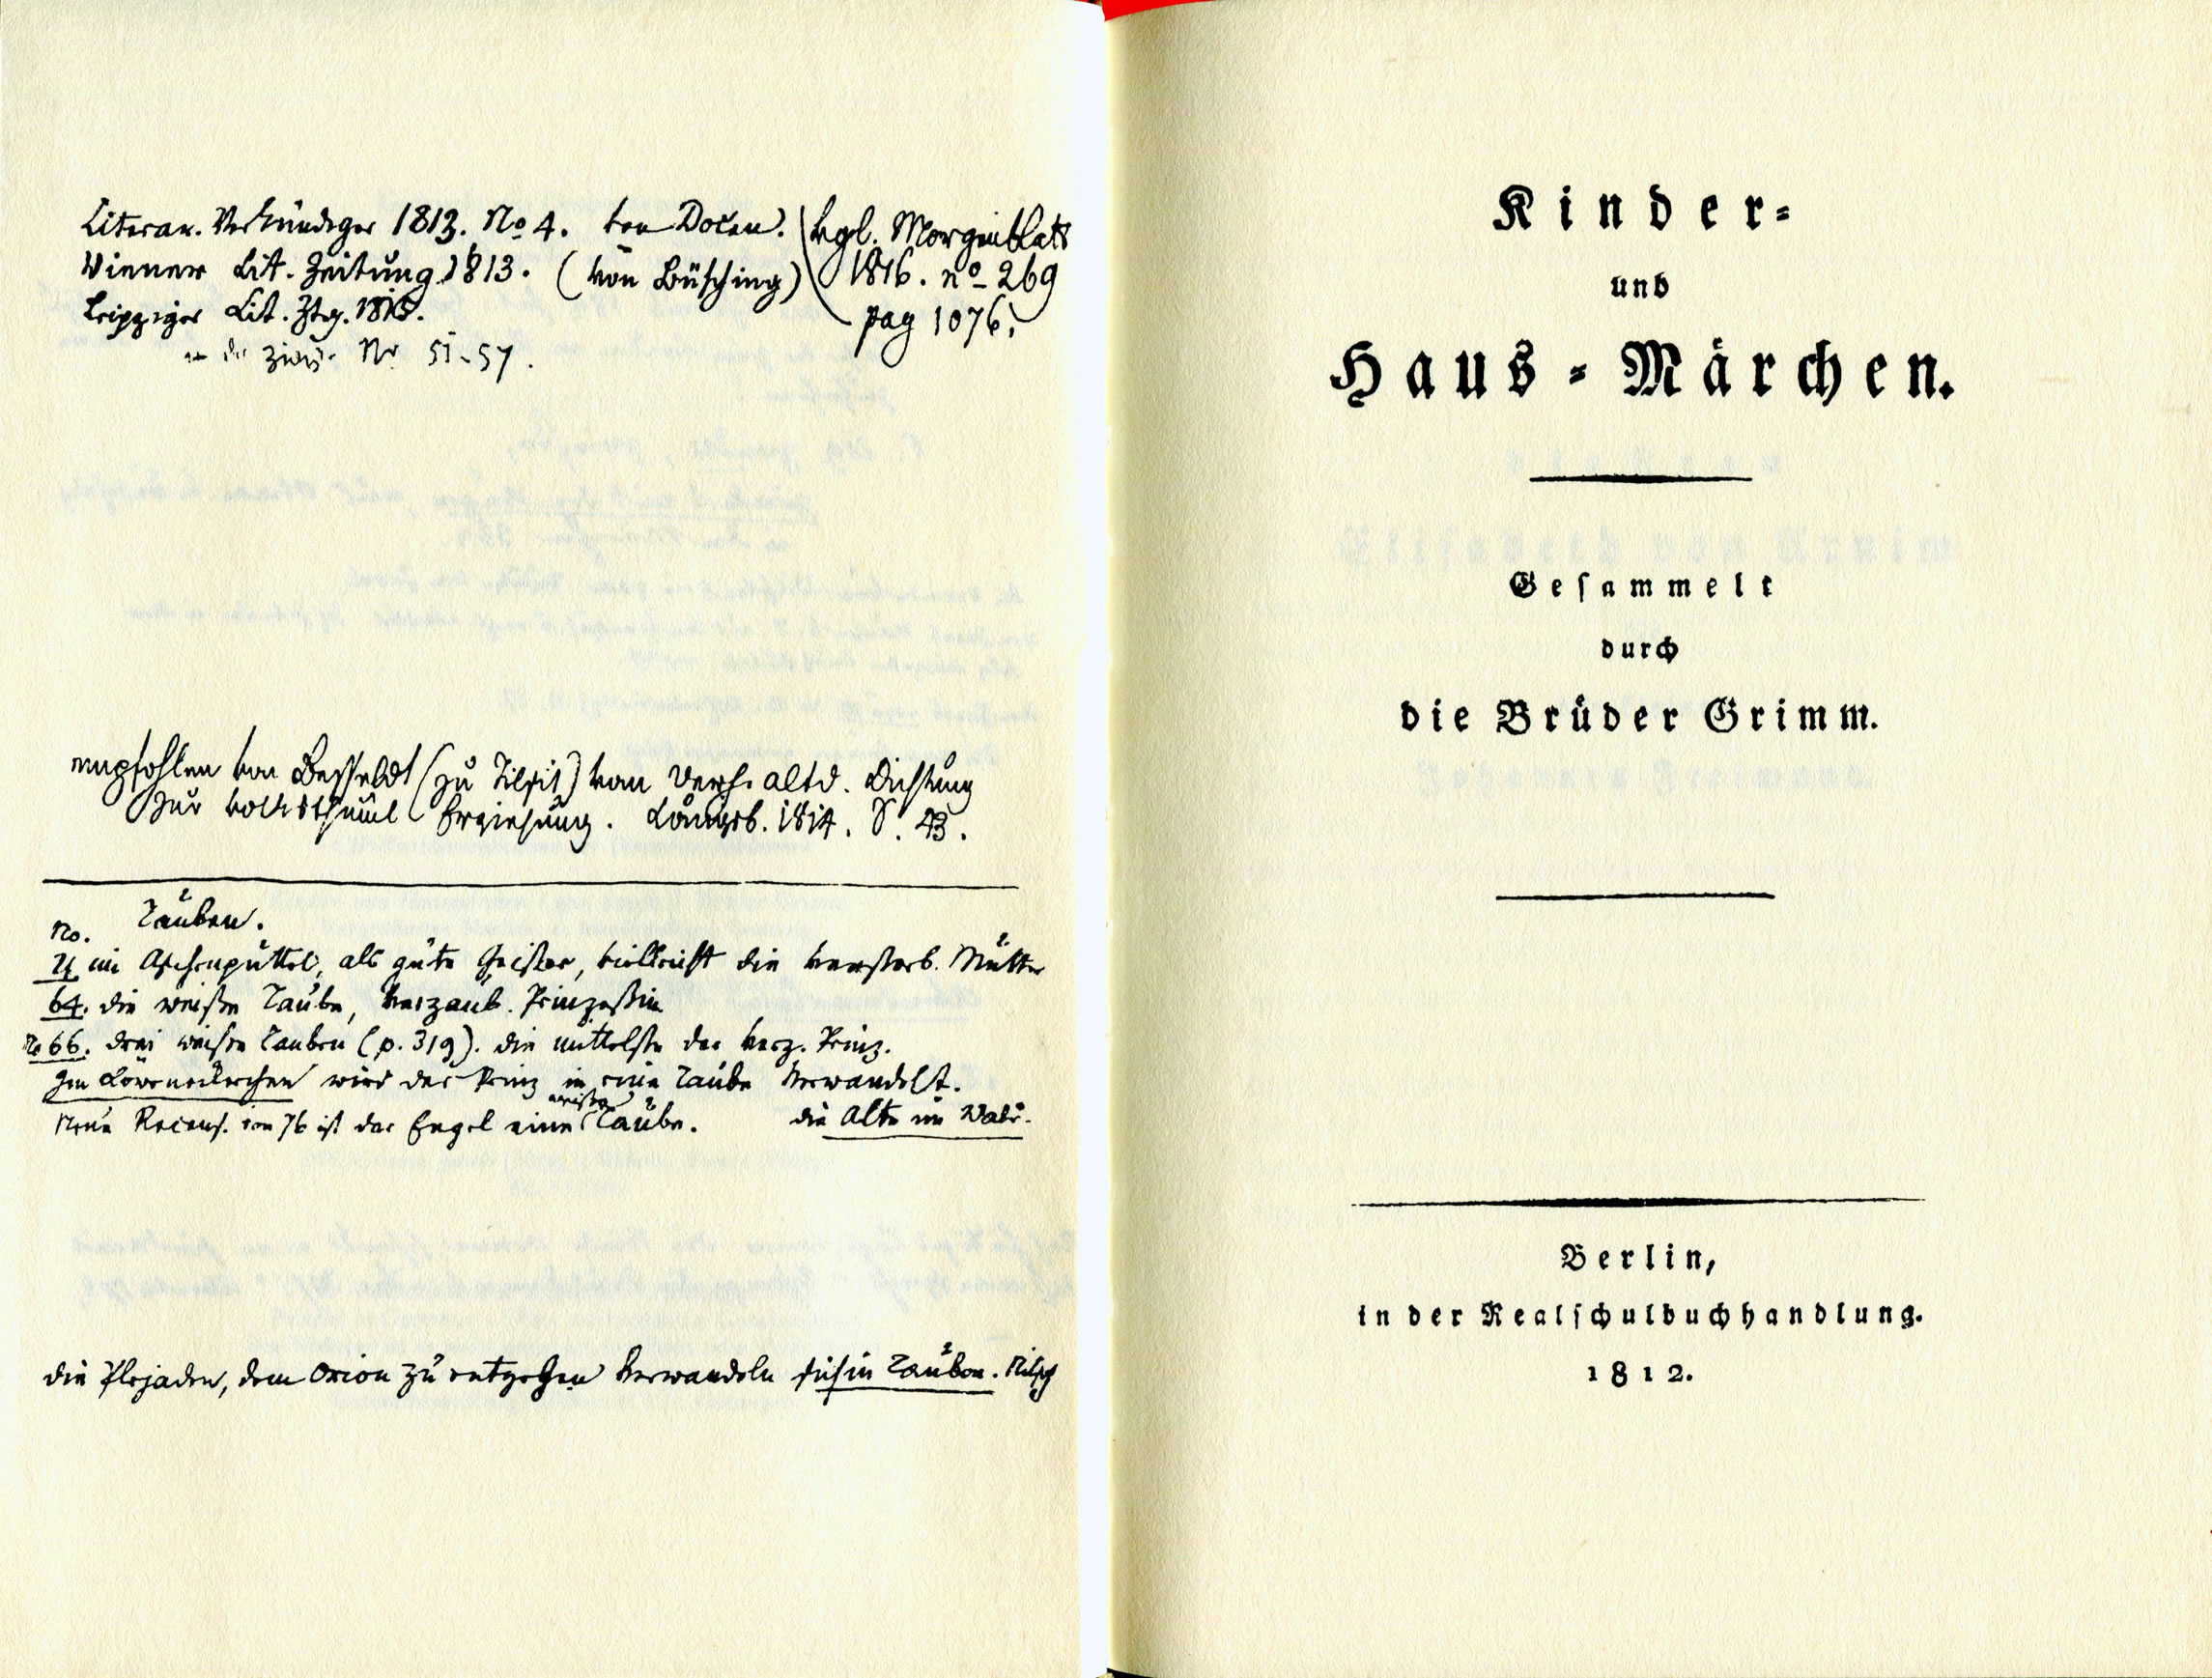 Literar. Verkündiger 1813. No 4. von Docen.
Wiener Lit. Zeitung 1813. (von Büsching)
Leipziger Lit. Ztg.
Nr 51-57.
vgl. Morgenblatt
1816. no 269
pag 1076.
empfohlen von (zu Tilsit) vom altd. Dichtung
zur Erziehung. Königsb. 1814. S. 43.
Tauben.
No.
21 im Aschenputtel, als gute Geister, vielleicht die verstorb. Mutter
64. die weiße Taube, verzaub. Prinzessin
No 66. drei weiße Tauben (p. 319). die mittelste der verz. Prinz.
Im Löweneckerchen wird der Prinz in eine Taube verwandelt.
Neue Recens. von 76 ist der Engel eine weiße Taube. die Alte im Wald.
die Plejaden, dem Orion zu entgehen verwandeln sich in Tauben.
Kinder-
und
Haus-Märchen.
Gesammelt
durch
die Brüder Grimm.
Berlin,
in der Realschulbuchhandlung.
1812.